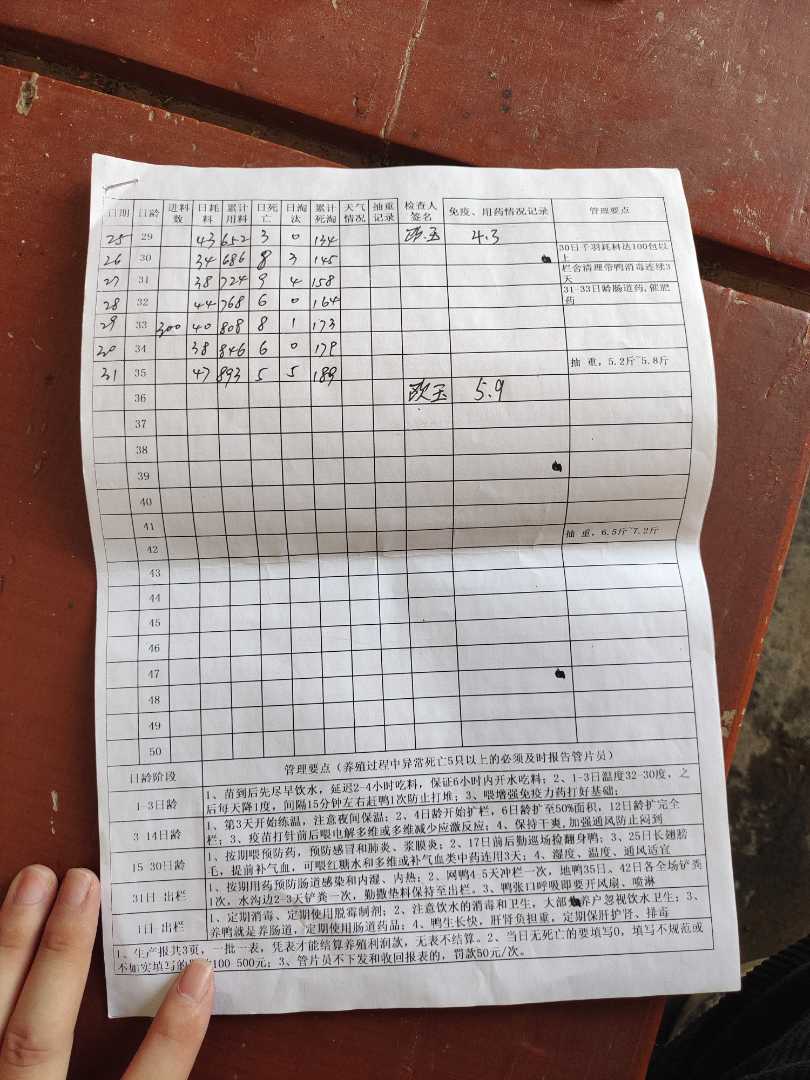 日期 日龄 进料数 日耗料 累计用料 日死亡 日淘汰 累计死淘 天气情况 抽重记录 检查人签名 免疫、用药情况记录 管理要点
25 29 43 652 3 0 134 欧玉 4.3
26 30 34 686 8 3 145 30日千羽耗料达100包以上
27 31 38 724 9 4 158 栏舍清理带鸭消毒连续3天
28 32 44 768 6 0 164 31-33日龄肠道药,催肥药
29 33 300 40 808 8 1 173
30 34 38 846 6 0 179
31 35 47 893 5 5 189 抽 重, 5.2斤~5.8斤
36 欧玉 5.9
37
38
39
40
41
42 抽 重, 6.5斤~7.2斤
43
44
45
46
47
48
49
50
日龄阶段 管理要点（养殖过程中异常死亡5只以上的必须及时报告管片员）
1-3日龄 1、苗到后先尽早饮水，延迟2-4小时吃料，保证6小时内开水吃料；2、1-3日温度32-30度，之
后每天降1度，间隔15分钟左右赶鸭1次防止打堆；3、喂增强免疫力药打好基础；
3-14日龄 1、第3天开始练温，注意夜间保温；2、4日龄开始扩栏，6日龄扩至50%面积，12日龄扩完全
栏；3、疫苗打针前后喂电解多维或多维减少应激反应；4、保持干爽,加强通风防止闷到
15-30日龄 1、按期喂预防药，预防感冒和肺炎、浆膜炎；2、17日前后勤巡场捡翻身鸭；3、25日长翅膀
毛，提前补气血，可喂红糖水和多维或补气血类中药连用3天；4、湿度、温度、通风适宜
31日-出栏 1、按期用药预防肠道感染和内湿、内热；2、网鸭4-5天冲栏一次，地鸭35日、42日各全场铲粪
1次，水沟边2-3天铲粪一次，勤撒垫料保持至出栏。3、鸭张口呼吸即要开风扇、喷淋
1日-出栏 1、定期消毒、定期使用脱霉制剂；2、注意饮水的消毒和卫生，大部 养户忽视饮水卫生；3、
养鸭就是养肠道，定期使用肠道药品；4、鸭生长快，肝肾负担重，定期保肝护肾、排毒
1、生产报共3页，一批一表，凭表才能结算养殖利润款，无表不结算。2、当日无死亡的要填写0，填写不规范或
不如实填写的 100-500元；3、管片员不下发和收回报表的，罚款50元/次。